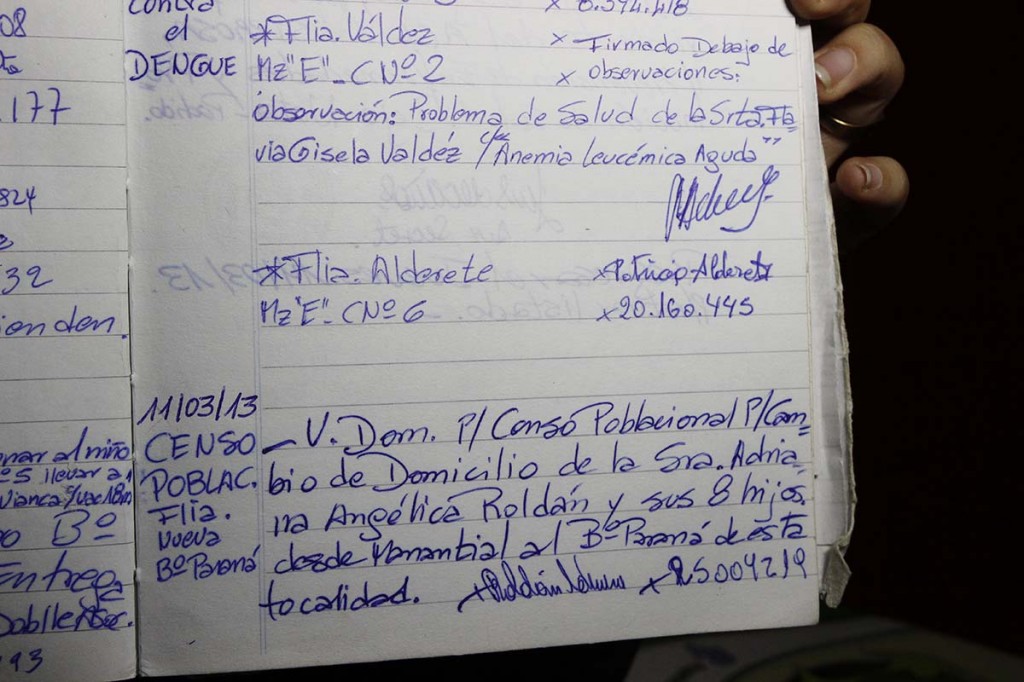 08
.177
824
32
ienden.
enar al niño
llevar a
Bº
Entrega
93
contra
el
DENGUE
x 6.394.418
*Flia. Váldez
x Firmado Debajo de
Mz"E"- C Nº 2
x observaciones:
óbservación: Problema de Salud de la Srta. Fla
via Gisela Valdéz "Anemia Leucémica Aguda"
*Flia. Alderete
x Patricia Alderete
Mz"E"- C Nº 6
x 20.160.445
11/03/13
CENSO
POBLAC.
Flia.
Nueva
Bº Paraná
- V. Dom. P/ Censo Poblacional P/Cam=
bio de Domicilio de la Sra. Adria=
na Angélica Roldán y sus 8 hijos
desde Manantial al Bº Paraná de esta
localidad. x Roldán x 25004219